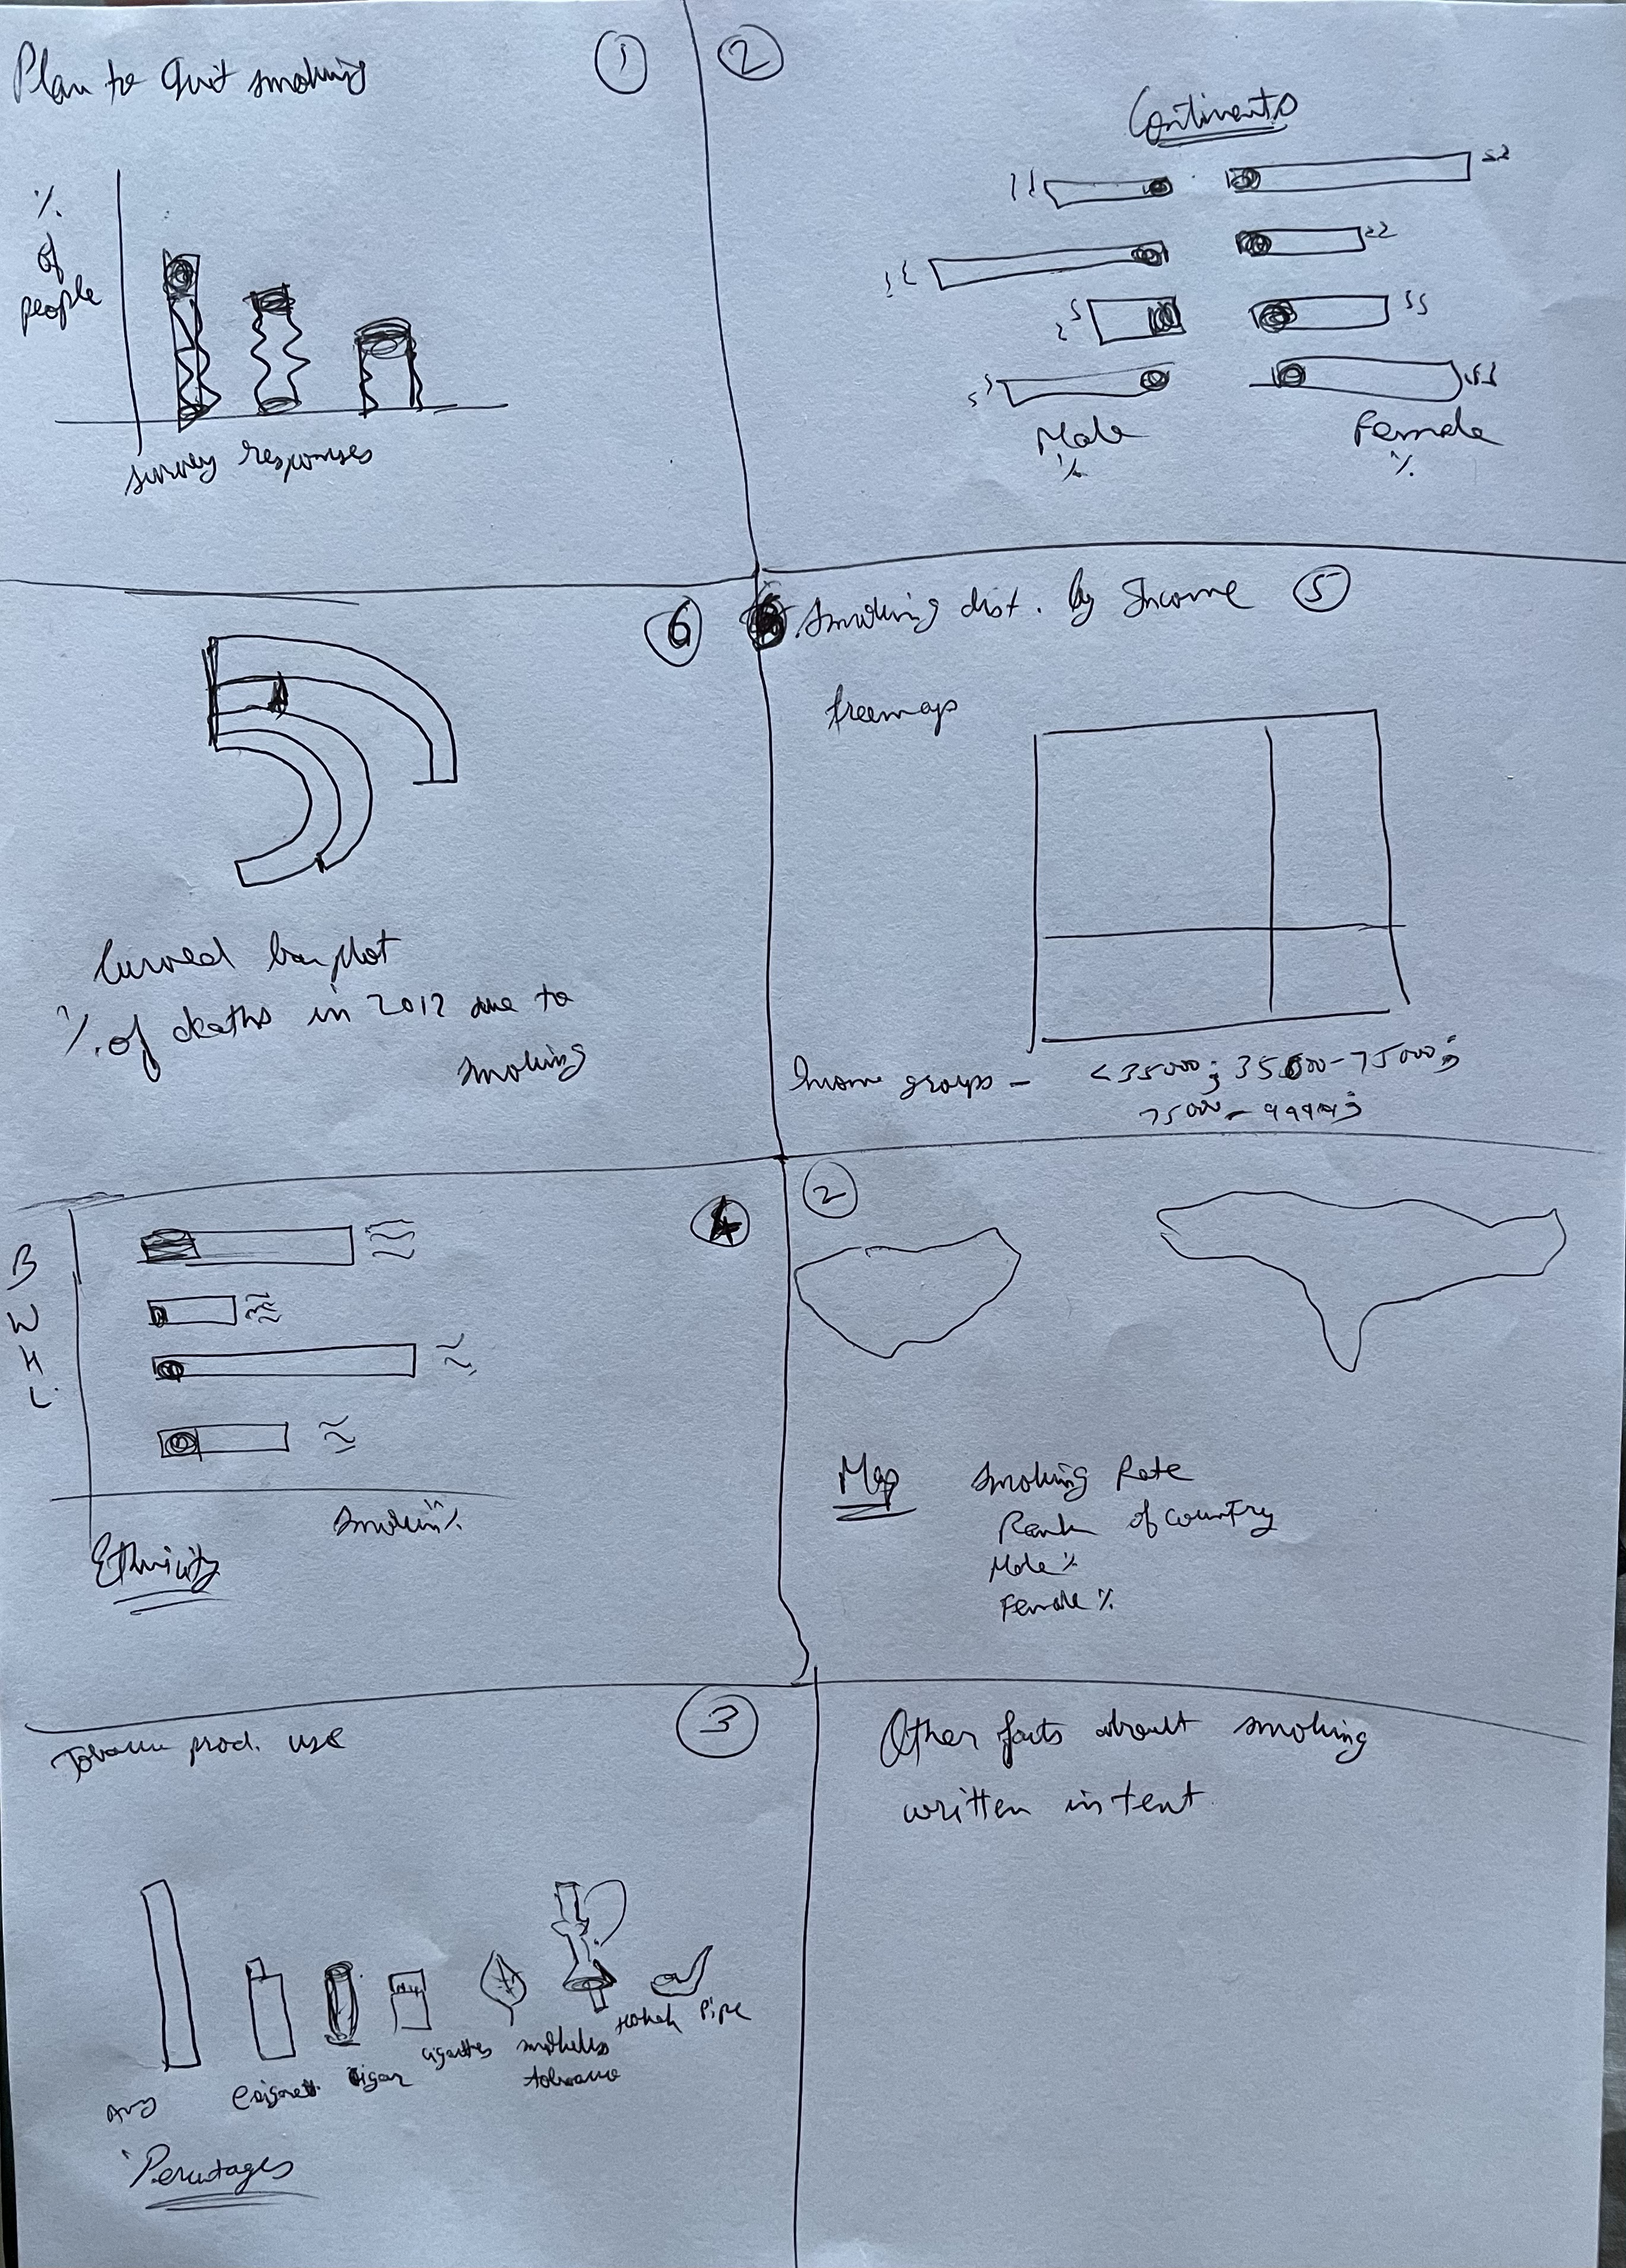 Plan to Quit smoking
1
%
of
people
survey responses
2
Continents
Male
%
Female
%
6
Curved bar plot
% of deaths in 2017 due to
smoking
Smoking dist. by Income 5
treemap
Income groups - <35000; 35000-75000;
75000 - 99999;
4
B
W
H
L
Smokin%
Ethnicity
2
Map
Smoking Rate
Rank of country
Male %
Female %
3
Tobacco prod. use
Any
Ecigarett.
Cigar
cigarettes
smokeless
tobacco
Hokah
Pipe
Percentages
Other facts about smoking
written in text.